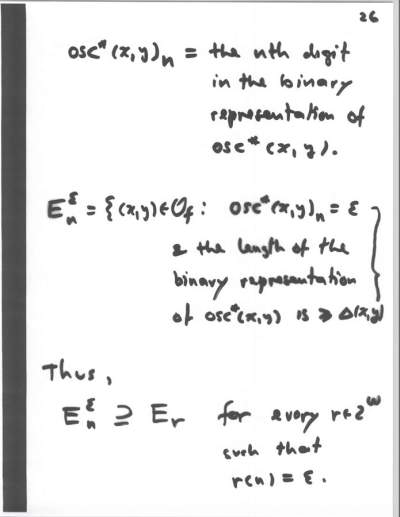 26
osc*(x,y)ₙ = the nth digit
in the binary
representation of
osc*(x,y).
Eₙ^ε = {(x,y)∈O_f : osc*(x,y)ₙ = ε
& the length of the
binary representation
of osc*(x,y) is ≥ Δ(x,y)}
Thus,
Eₙ^ε ⊇ Eᵣ for every r∈2^ω
such that
r(n) = ε.